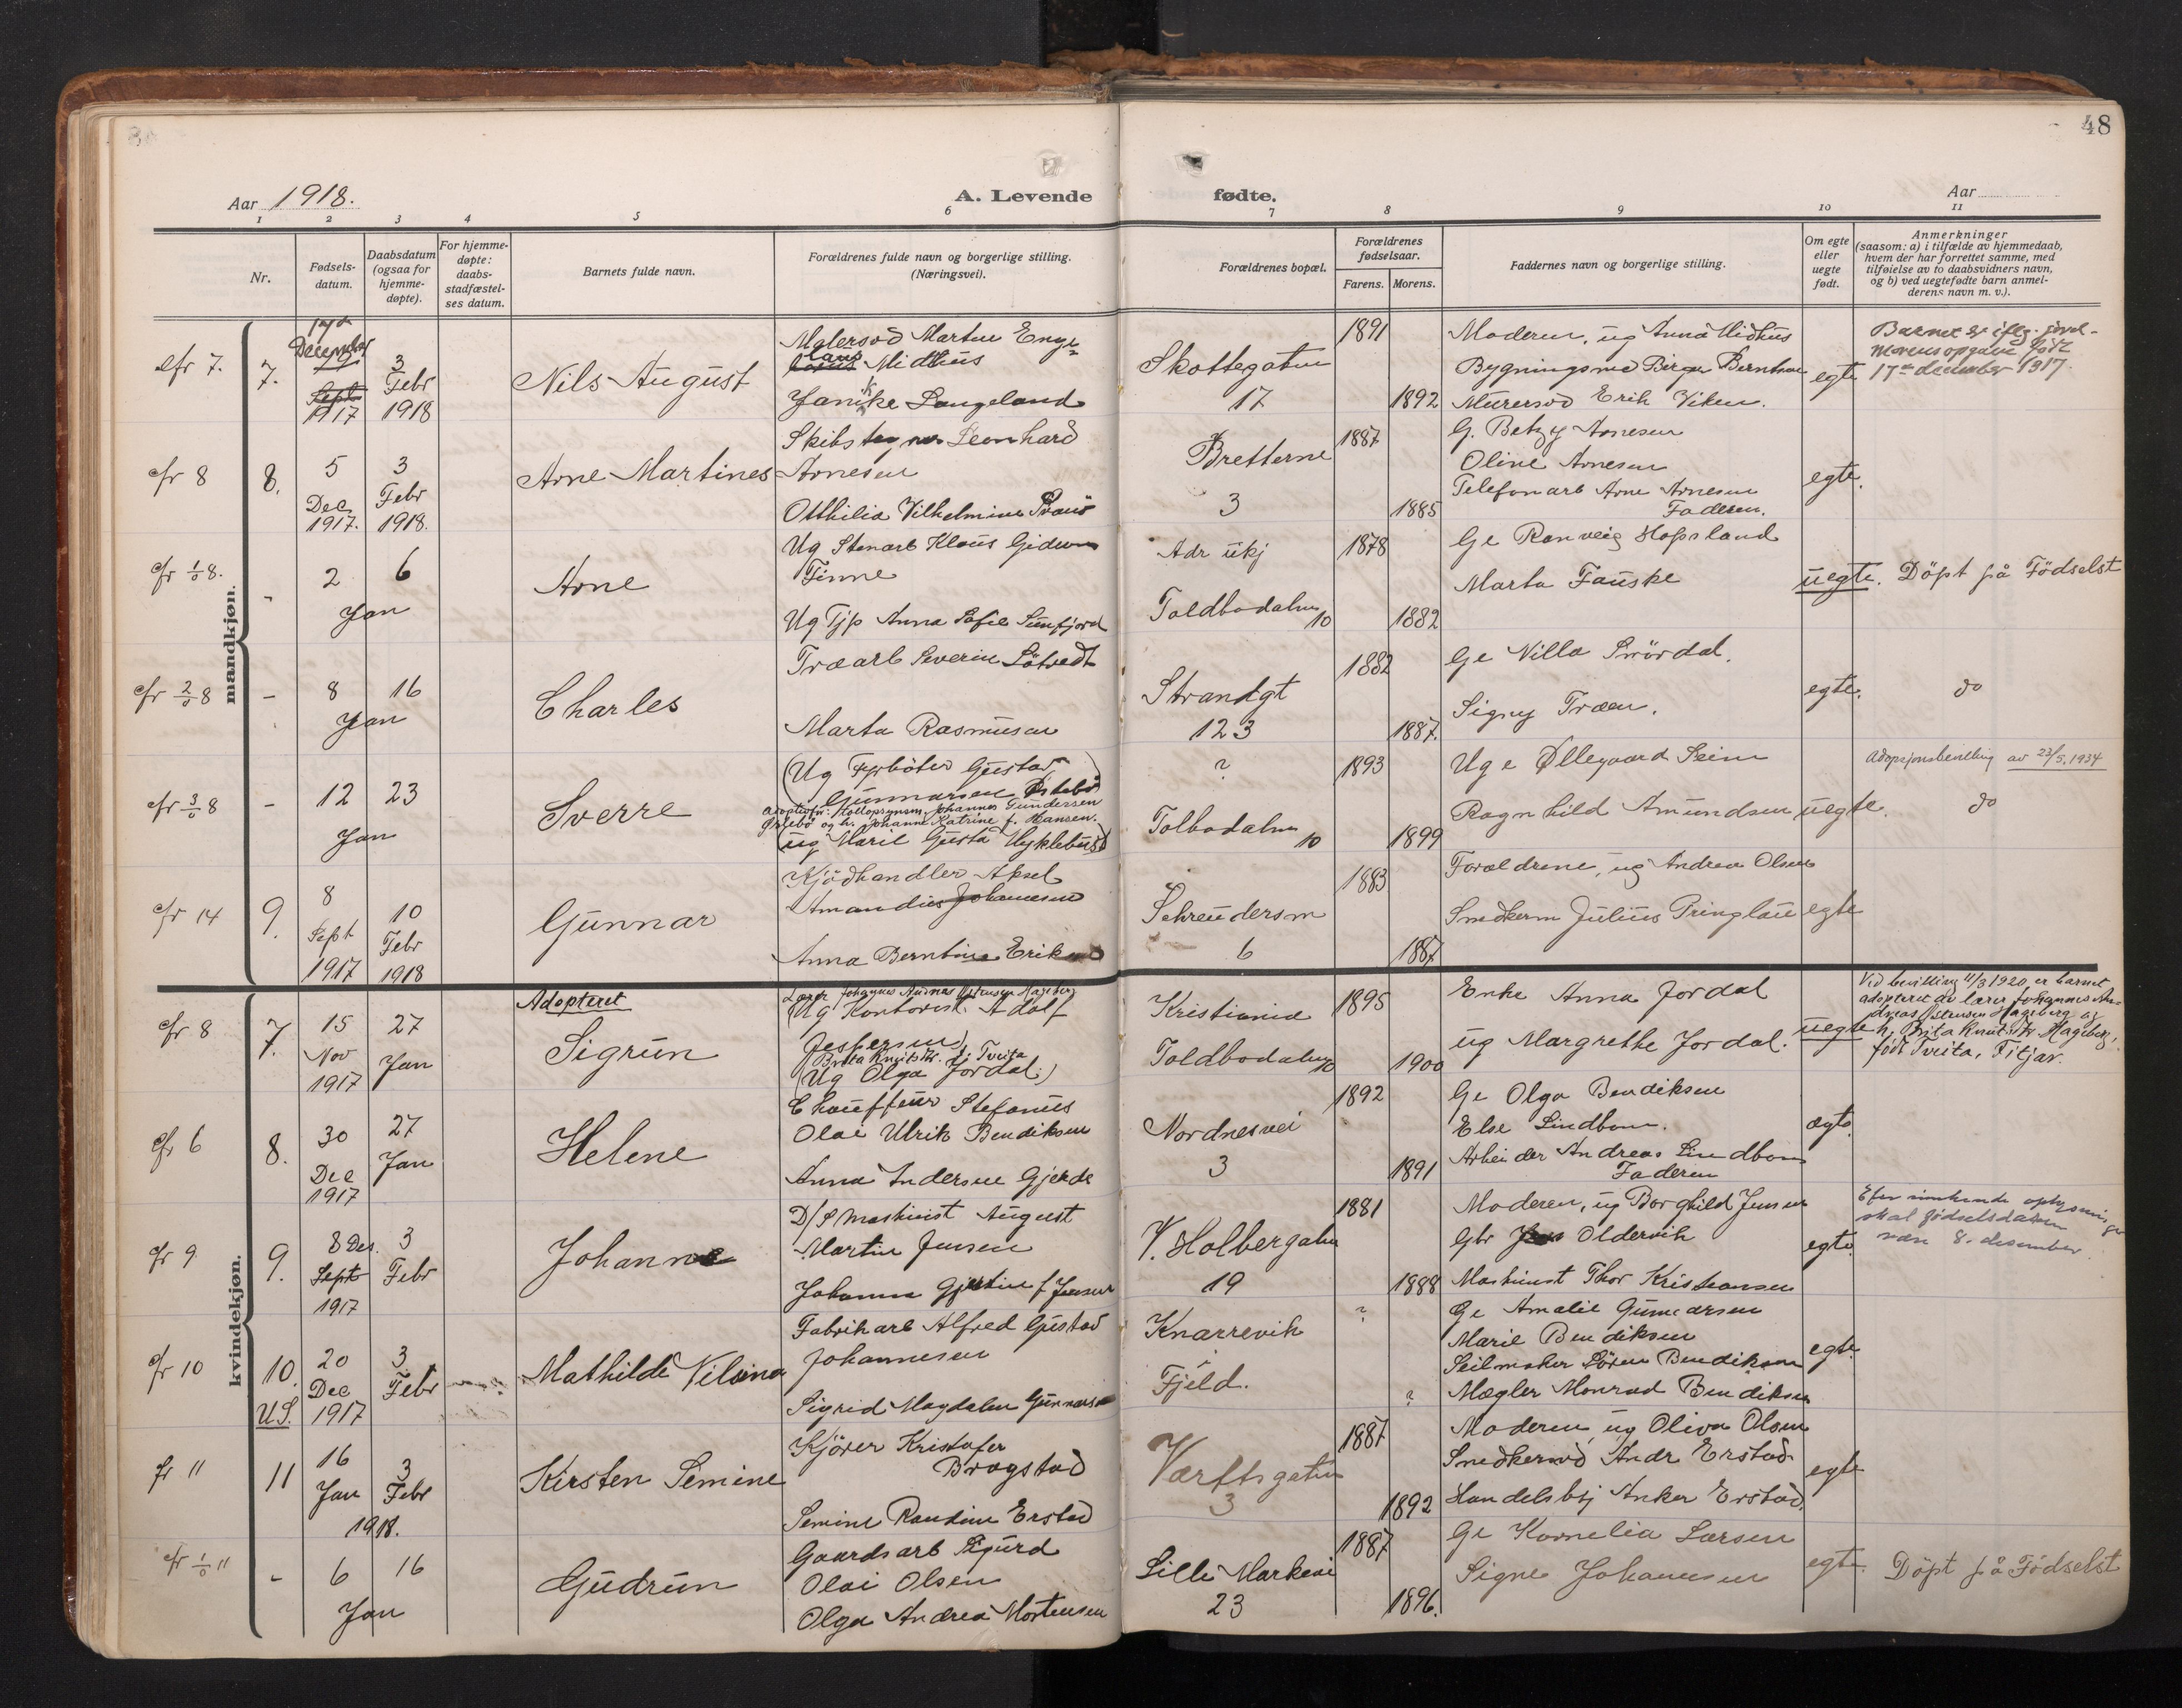 48
Aar 1918.
A. Levende
fødte.
Aar
1 2 3 4 5 6 7 8 9 10 11
Nr.
Fødsels-
datum.
Daabsdatum
(ogsaa for
hjemme-
døpte).
For hjemme-
døpte:
daabs-
stadfæstel-
ses datum.
Barnets fulde navn.
Forældrenes fulde navn og borgerlige stilling.
(Næringsvei).
Forældrenes bopæl.
Forældrenes
fødselsaar.
Farens. Morens.
Faddernes navn og borgerlige stilling.
Om egte
eller
uegte
født.
Anmerkninger
(saasom: a) i tilfælde av hjemmedaab,
hvem der har forrettet samme, med
tilføielse av to daabsvidners navn,
og b) ved uegtefødte barn anmel-
derens navn m. v.).
mandkjøn.
cfr 7.
7.
17de
December
Sept
1917
3
Febr
1918
Nils August
Malersvd Martin Enge
laus Midthus
Janike Langeland
Skottegaten
17
1891
1892
Moderen, ug Anna Midhus
Bygningsmed Birger Berntsen
Murersvd Erik Viken.
egte
Barnet er iflg. jord-
morens opgave født
17de december 1917.
cfr 8
8.
5
Dec
1917.
3
Febr
1918.
Arne Martines
Skibstegner Leonhard
Arnesen
Otthilia Vilhelmine
Bretterne
3
1887
1885
G. Betzy Arnesen
Oline Arnesen
Telefonarb Arne Arnesen
Faderen.
egte.
cfr 1/0 8.
-
2
Jan
6
Arne
Ug Stenarb Klaus Gideon
Finne
Ug Tjp Anna Sofie Sunfjord
Adr ukj
Toldbodalm
10
1878
1882
Ge Ranveig Hopsland
Marta Fauske
uegte.
Döpt på Födselst
cfr 2/0 8
-
8
Jan
16
Charles
Træarb Severin Låtvedt
Marta Rasmusen
Strandgt
123
1882
1887.
Ge Villa Smørdal.
Signy Træen.
egte.
do
cfr 3/0 8
-
12
Jan
23
Sverre
(Ug Fyrbøter Gustav
Gunnarsen Østebö
Johannes Gundersen
og h. Johanne Katrine f. Hansen.
ug Marie Gusta Myklebust)
?
Tolbodalm
10
1893
1899
Ug e Øllegaard Seim
Ragnhild Amundsen
uegte.
Adopsjonsbevilling av 23/5.1934
do
cfr 14
9.
8
Sept
1917
10
Febr
1918
Gunnar
Kjödhandler Aksel
Amandus Johannesen
Anna Berntine Eriksen
Schreudersm
6
1883
1887
Forældrene, ug Andrea Olsen
Snedkerm Julius Pringlau
egte
kvindekjøn.
cfr 8
7.
15
Nov
1917
27
Jan
Adopteret
Sigrun
Lærer Johannes Andreas Østensen Hageberg
(Ug Kontorist Adolf
Jespersen)
Brita Knuts f. Tveita
(Ug Olga Jordal.)
Kristiania
Toldbodalm
10
1895
1900
Enke Anna Jordal
ug Margrethe Jordal.
uegte
Ved bevilling 11/3 1920, er barnet
adopteret av lærer Johannes An-
dreas Østensen Hageberg og
h. Brita Knutsdtr Hageberg,
født Tveita, Fitjar.
cfr 6
8.
30
Dec
1917
27
Jan
Helene
Chauffeur Stefanus
Olai Ulrik Bendiksen
Anna Andersen Gjerde
Nordnesvei
3
1892
1891
Ge Olga Bendiksen
Else Lindbom.
Arbeider Andreas Lindbom
Faderen
ægte.
cfr 9
9.
8 Des.
Sept
1917
3
Febr
Johanne
D/S Maskinist August
Martin Jensen
Johanna Gjertine f Jensen
V. Holbergalm
19
1881
1888
Moderen, ug Borghild Jensen
Gbr Jens Oldervik
Maskinist Thor Kristiansen
egte.
Efter innhende oplysninger
skal fødselsdatoen
være 8. desember.
cfr 10
10.
U.S.
20
Dec
1917
3
Febr
Mathilde Vilsina
Fabrikarb Alfred Gustav
Johannesen
Sigrid Magdalene Gunnarsen
Knarrevik
Fjeld.
?
?
Ge Amalie Gunnarsen
Marie Bendiksen
Seilmaker Sören Bendiksen
Mægler Monrad Bendiksen
egte.
fr 11
11
16
Jan
3
Febr
1918.
Kirsten Semine
Kjörer Kristofer
Brogstad
Semine Raudine Erstad
Værftsgaten
3
1887
1892
Moderen, ug Oliva Olsen
Snedkersvd Andr Erstad
Handelsbtj Anker Erstad
egte
cfr 1/0 11
-
6
Jan
16
Gudrun
Gaardsarb Sigurd
Olai Olsen
Olga Andrea Mortensen
Lille Markevei
23
1887
1896.
Ge Kornelia Larsen
Signe Johannesen
egte.
Döpt på Födselst